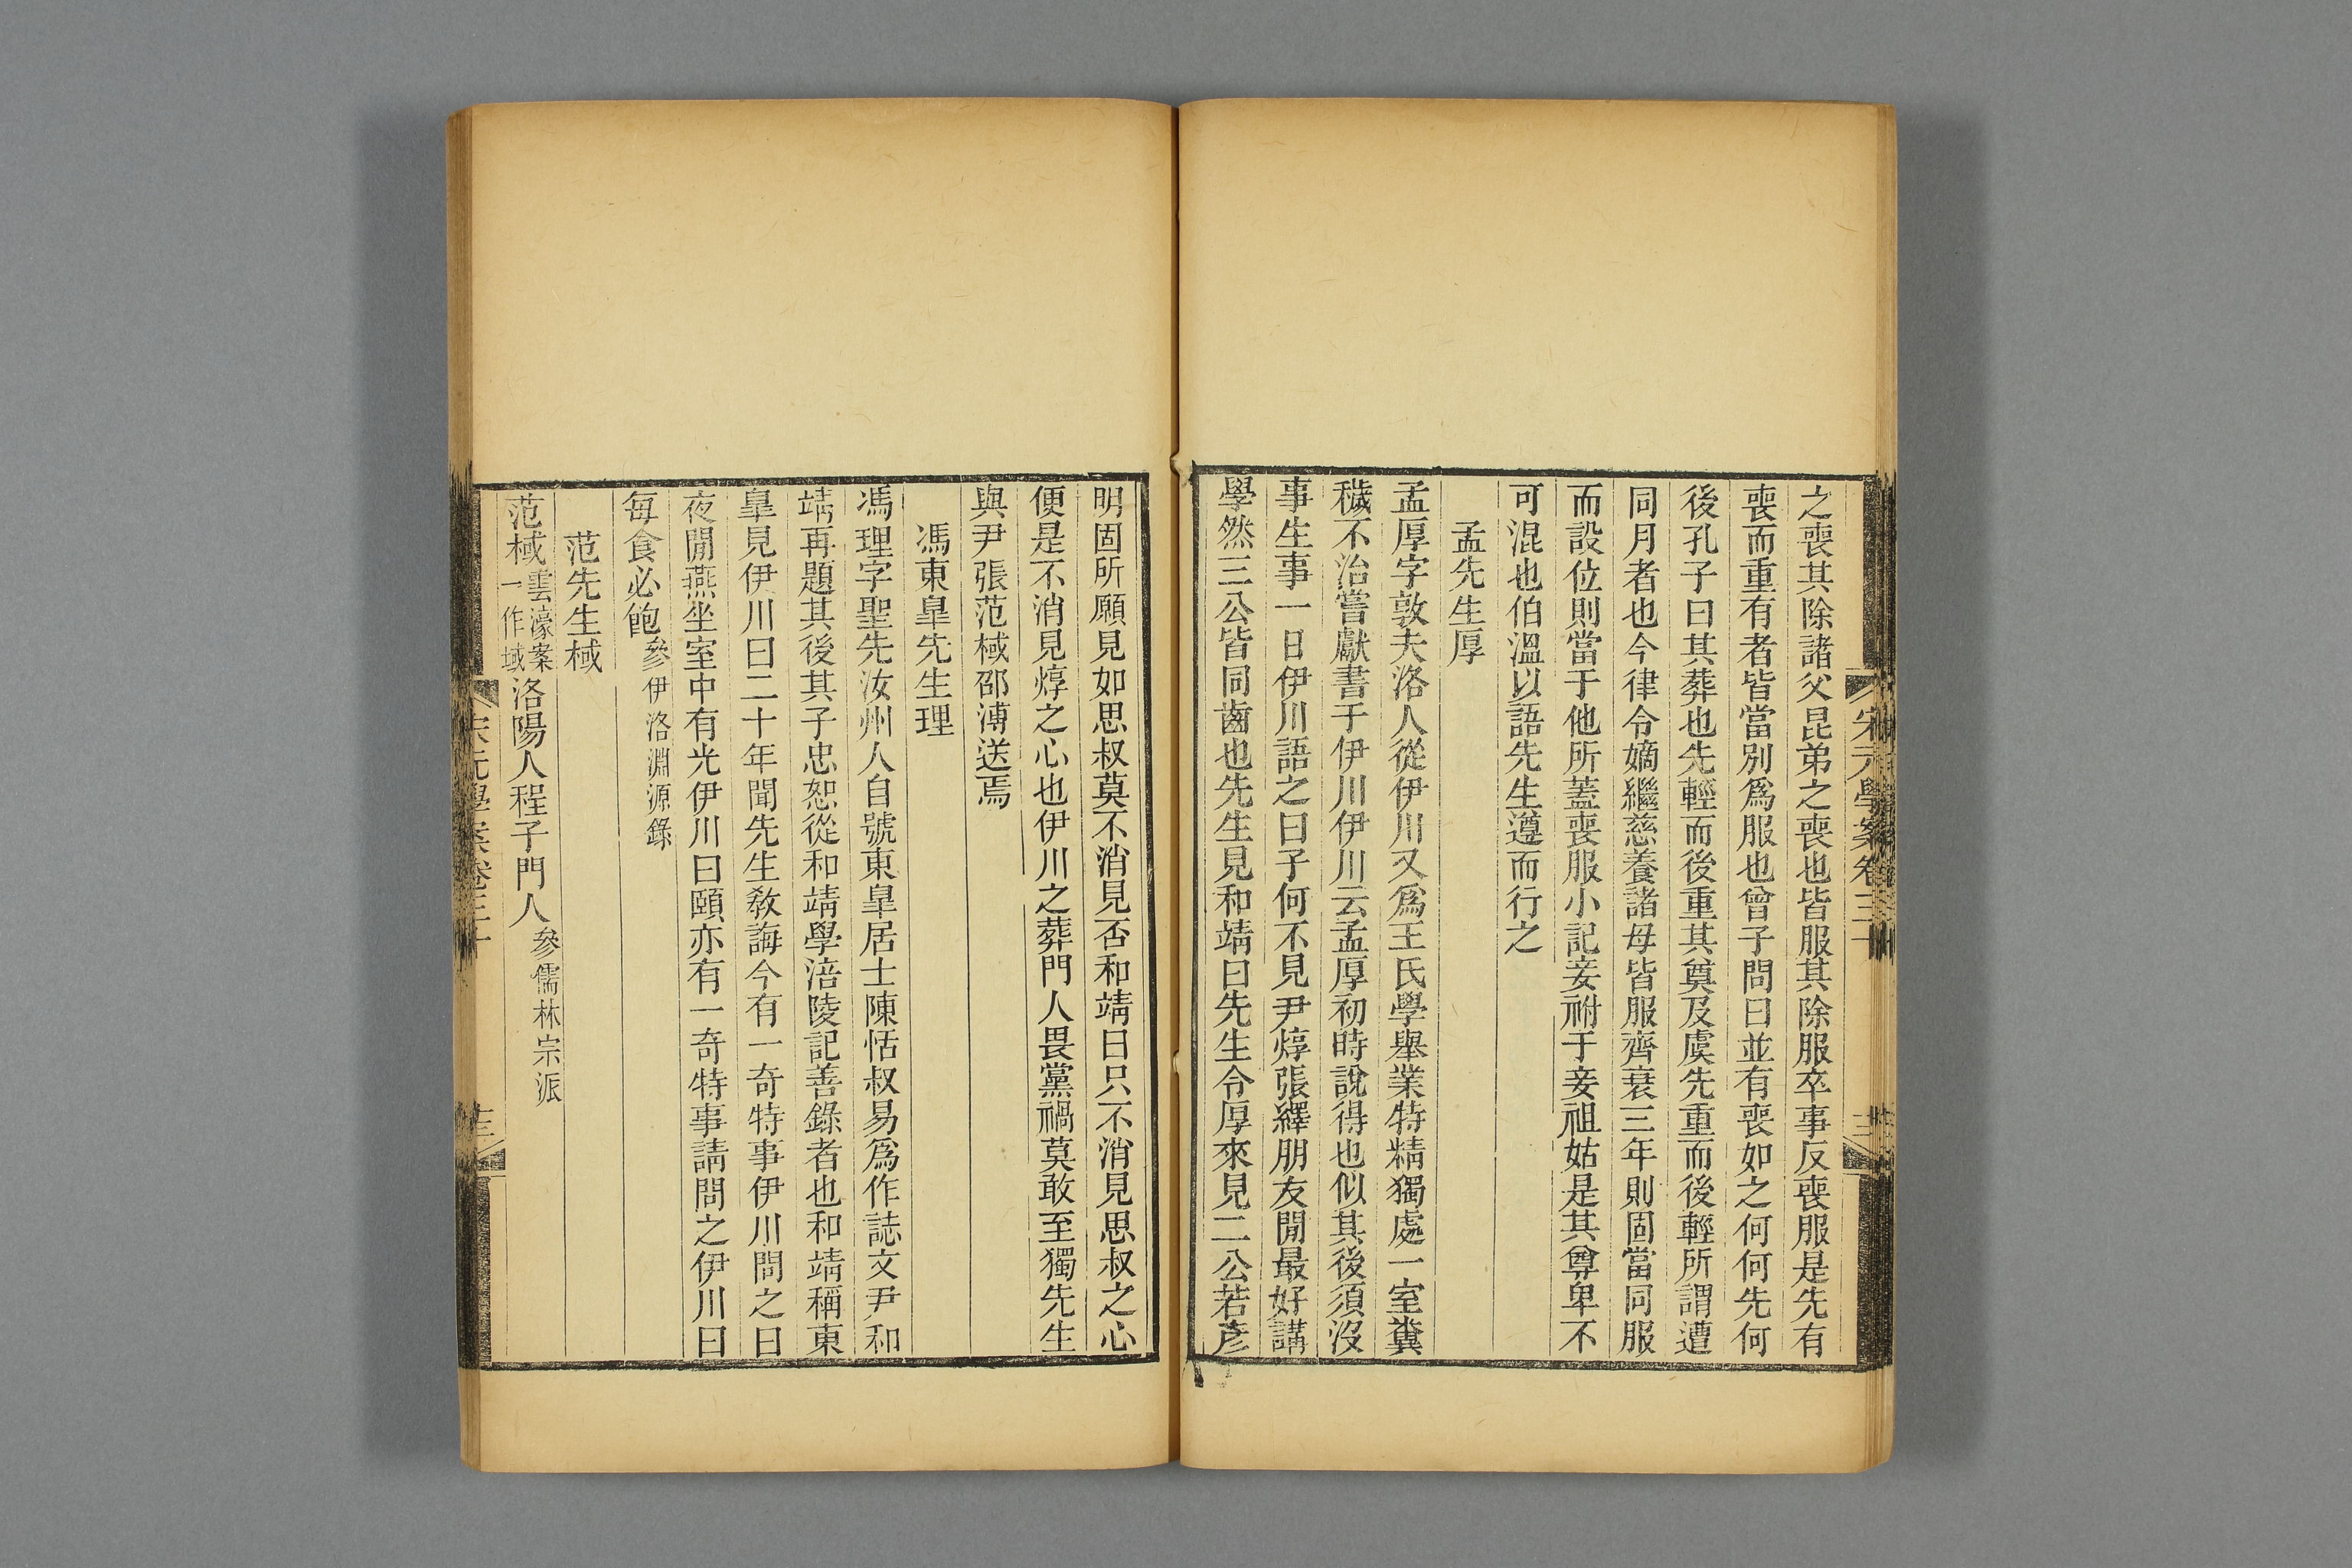 之喪其除諸父昆弟之喪也皆服其除服卒事反喪服是先有
喪而重有者皆當別爲服也曾子問曰並有喪如之何何先何
後孔子曰其葬也先輕而後重其奠及虞先重而後輕所謂遭
同月者也今律令嫡繼慈養諸母皆服齊衰三年則固當同服
而設位則當于他所蓋喪服小記妾祔于妾祖姑是其尊卑不
可混也伯溫以語先生遵而行之
孟先生厚
孟厚字敦夫洛人從伊川又爲王氏學舉業特精獨處一室糞
穢不治嘗獻書于伊川伊川云孟厚初時說得也似其後須沒
事生事一日伊川語之曰子何不見尹焞張繹朋友閒最好講
學然三公皆同齒也先生見和靖曰先生令厚來見二公若彥
明固所願見如思叔莫不消見否和靖曰只不消見思叔之心
便是不消見焞之心也伊川之葬門人畏黨禍莫敢至獨先生
與尹張范棫邵溥送焉
馮東皐先生理
馮理字聖先汝州人自號東皐居士陳恬叔易爲作誌文尹和
靖再題其後其子忠恕從和靖學涪陵記善錄者也和靖稱東
皐見伊川曰二十年聞先生教誨今有一奇特事伊川問之曰
夜閒燕坐室中有光伊川曰頤亦有一奇特事請問之伊川曰
每食必飽參伊洛淵源錄
范先生棫
范棫雲濠案一作域洛陽人程子門人參儒林宗派
宋元學案卷三十